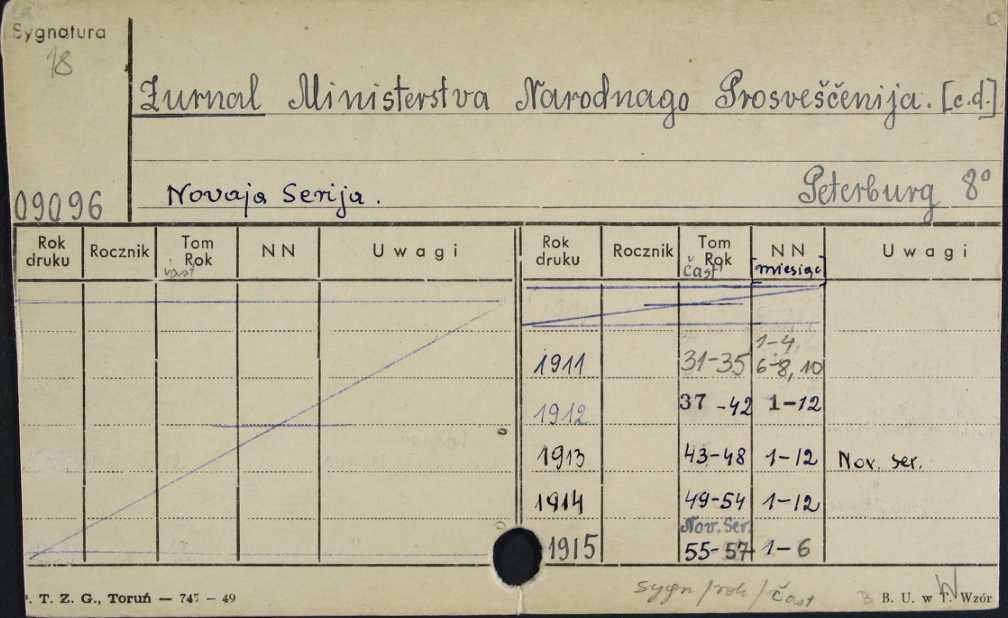 Sygnatura
18
Žurnal Ministerstva Narodnago Prosveščenija. [c.d.]
09096
Novaja Serija.
Peterburg 8°
Rok druku Rocznik Tom Rok čast NN Uwagi Rok druku Rocznik Tom Rok čast NN [miesiąc] Uwagi
1911 31-35 1-4, 6-8, 10
1912 37-42 1-12
1913 43-48 1-12 Nov. ser.
1914 49-54 1-12
Nov. Ser.
1915 55-57 1-6
sygn/rok/čast
P. T. Z. G., Toruń — 747 — 49
B. U. w T. Wzór